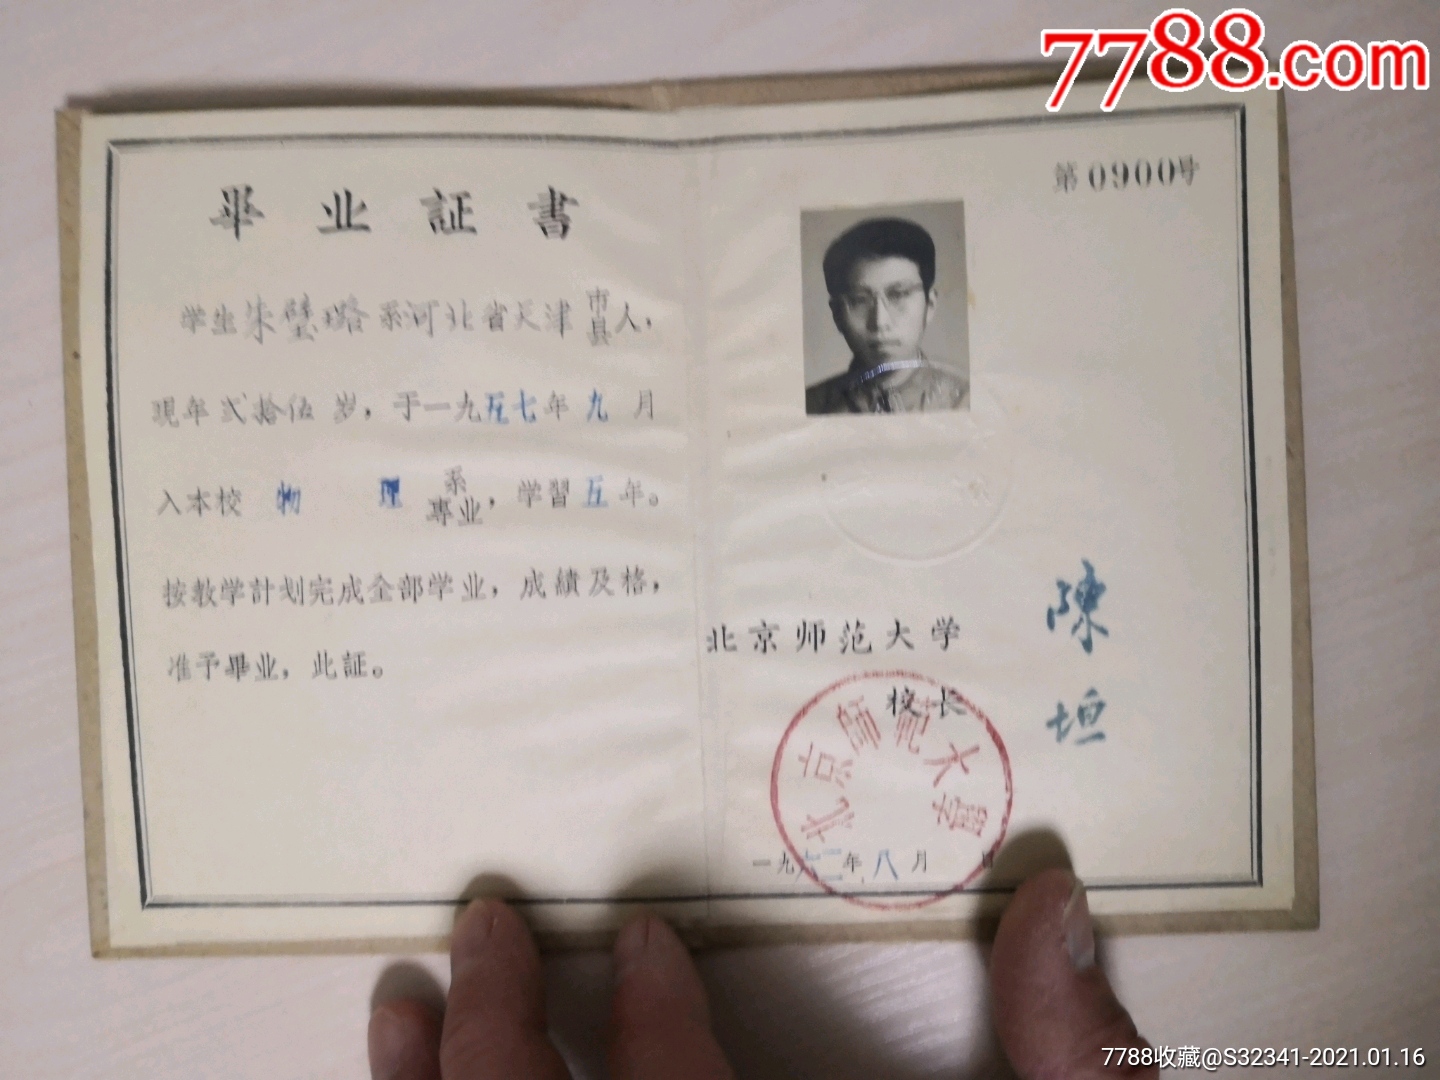 7788.com
畢业証書
学生朱璧璐系河北省天津市县人，
現年弍拾伍岁，于一九五七年九月
入本校物理系專业，学習五年。
按教学計划完成全部学业，成績及格，
准予畢业，此証。
第0900号
北京师范大学
校长
陳垣
北京師範大學
一九六二年八月 日
7788收藏@S32341-2021.01.16